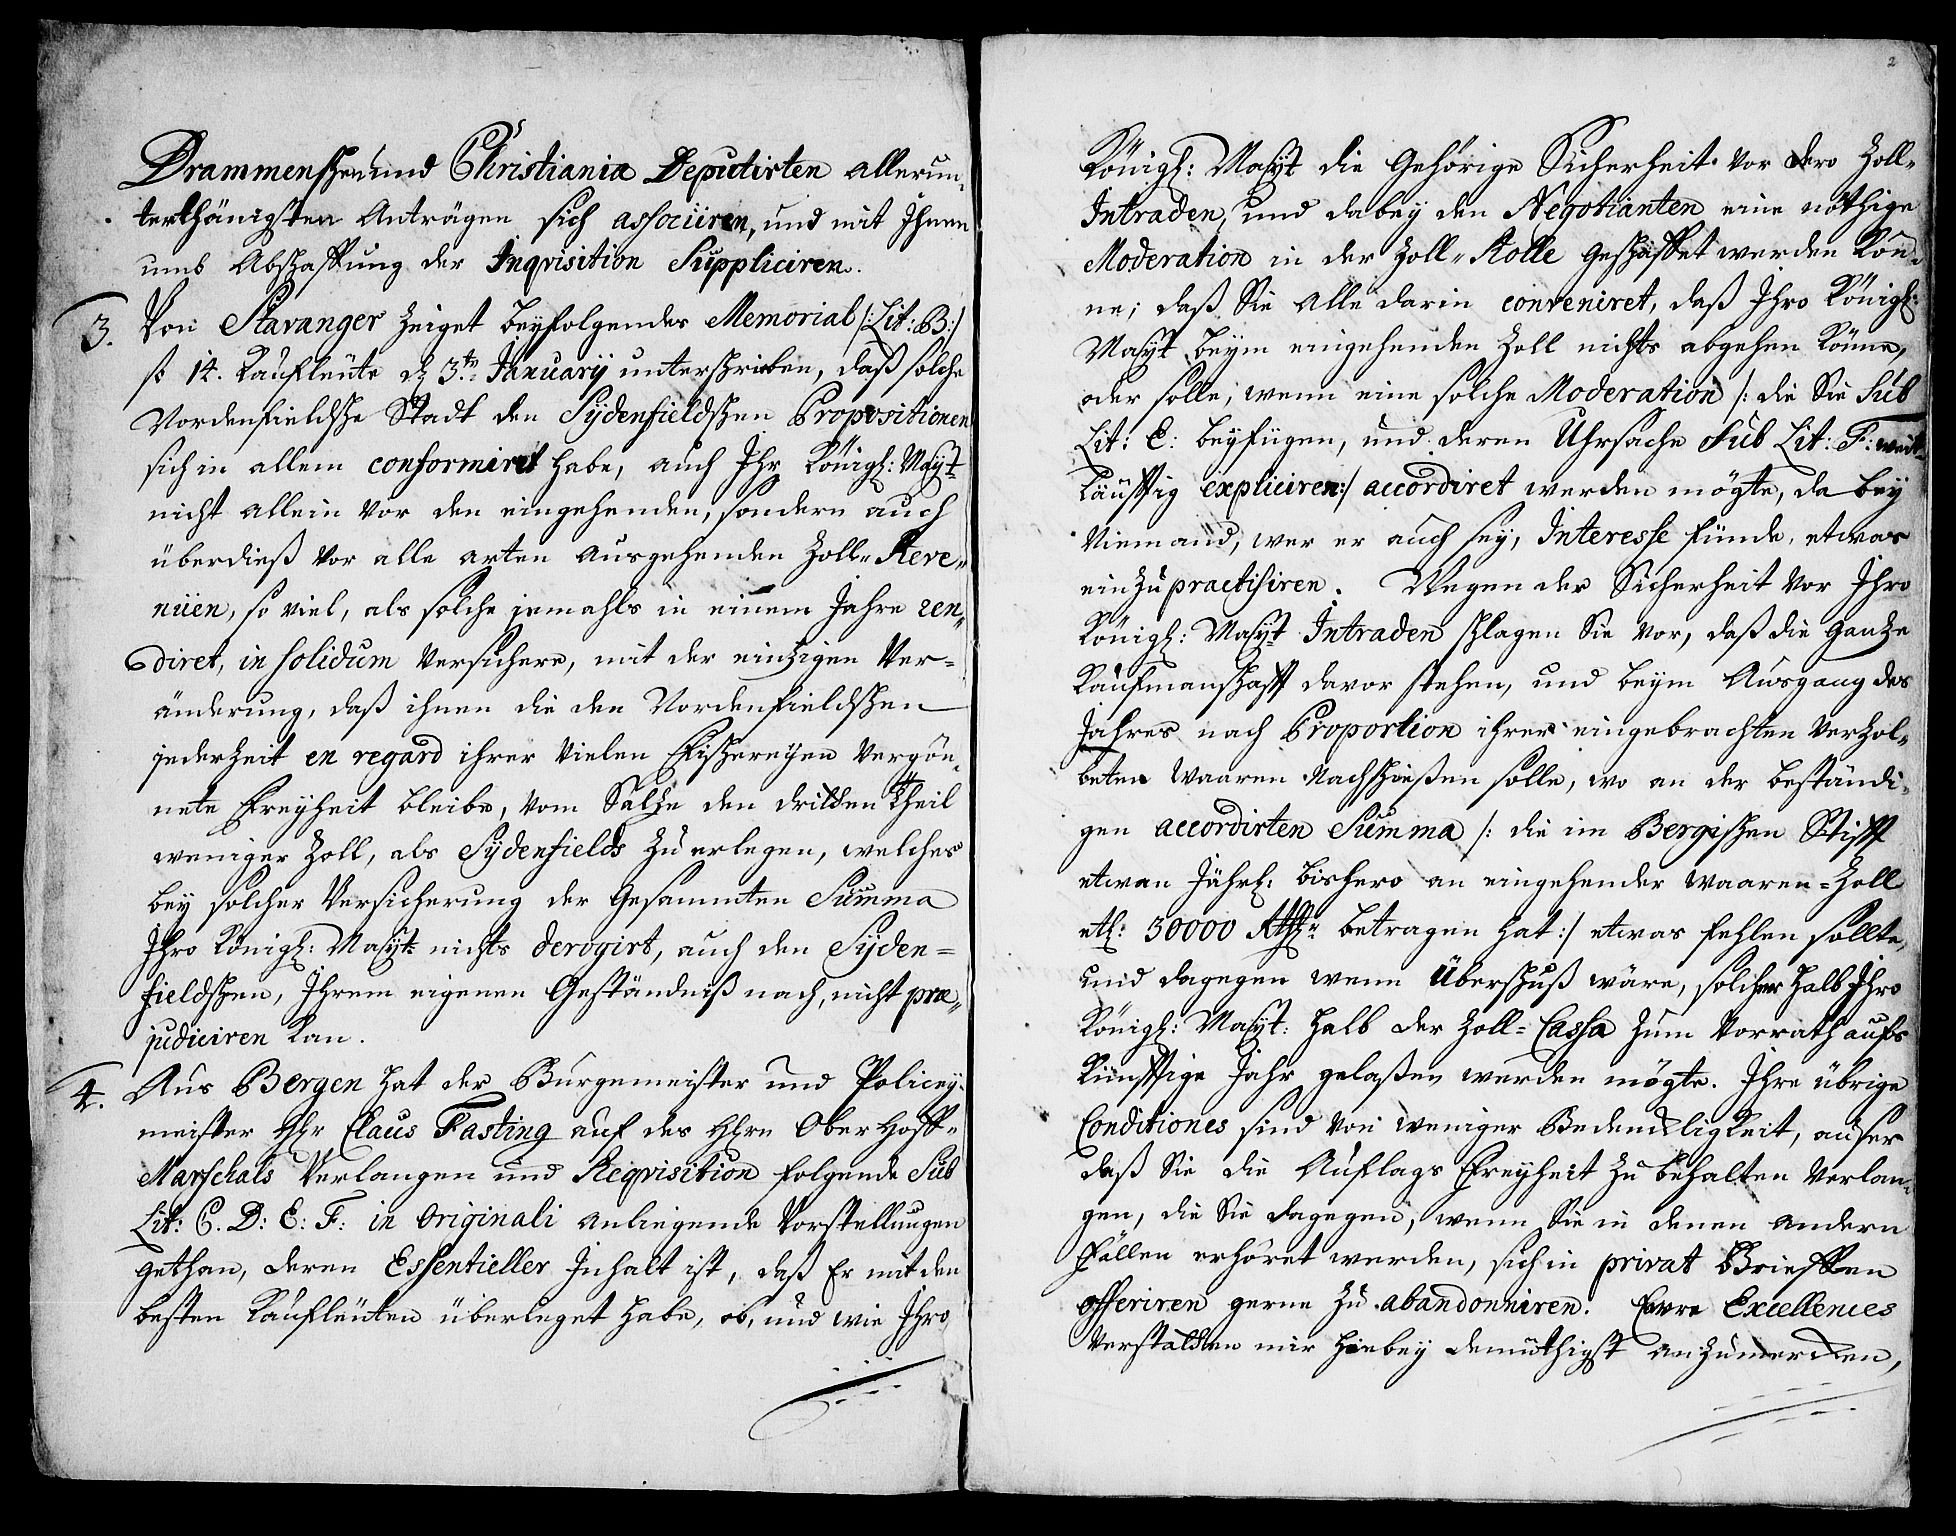 Drammenschen und Christiania Deputirten allerun-
terthänigsten Anträgen sich associiren, und mit Ihnen
umb Abschaffung der Inqvisition Suppliciren.
3. Von Stavanger zeiget beyfolgendes Memorial /: Lit: B: /
14. Kaufleüte 3.te January unterschrieben, daß solche
Nordenfieldsche Stadt den Sÿdenfieldschen Propositionen
sich in allem conformiret habe, auch Ihr Königl: Maÿt
nicht allein vor den eingehenden, sondern auch
überdieß vor alle arten ausgehenden Zoll-Reve-
nüen, so viel, als solche jemahls in einem Jahre ren-
diret, in solidum versichere, mit der eintzigen Ver-
änderung, daß ihnen die den Nordenfieldschen
jederzeit en regard ihrer vielen Fischereÿen vergön-
nete Freyheit bleibe, vom Saltze den dritten theil
weniger Zoll, als Sÿdenfields zu erlegen, welches
bey solcher Versicherung der Gesammten Summa
Ihro Königl: Maÿt: nichts derogirt, auch den Sÿden-
fieldschen, Ihrem eigenen Geständniß nach, nicht præ-
judiciren kan.
4. Aus Bergen hat der Burgemeister und Policey-
meister Hhr Claus Fasting auf des Hhrn Ober Hoff-
Marschals Verlangen und Reqvisition folgende Sub
Lit: C. D: E: F: in Originali anliegende Vorstellungen
gethan, deren Essentieller Inhalt ist, daß Er mit den
besten Kaufleüten überleget habe, ob, und wie Ihro
2
Königl: Maÿt die Gehörige Sicherheit vor dero Zoll-
Intraden, und dabey den Negotianten eine nöthige
Moderation in der Zoll-Rolle geschaffet werden kön-
ne; daß Sie alle darin conveniret, daß Ihro Königl:
Maÿt beym eingehenden Zoll nichts abgehen könne,
oder solle, wenn eine solche Moderation /: die Sie Sub
Lit: E: beyfügen, und deren Uhrsache Sub Lit: F: weit-
läufftig expliciren:/ accordiret werden mögte, da bey
Niemand, wer er auch sey, Interesse fünde, etwas
einzupractisiren. Wegen der Sicherheit vor Ihro
Königl: Maÿt Intraden schlagen Sie vor, daß die gantze
Kaufmanschafft davor stehen, und beym Ausgang des
Jahres nach Proportion ihrer eingebrachten verzol-
beten Waaren Nachschießen solle, wo an der beständi-
gen accordirten Summa /: die im Bergischen Stifft
etwan Jährl. bishero an eingehender Waaren-Zoll
etl: 30000 Rthlr betragen hat:/ etwas fehlen sollte,
und dagegen wenn Überschuß wäre, solcher halb Ihro
Königl: Maÿt: halb der Zoll-Cassa zum Vorrath aufs
künfftige Jahr gelaßen werden mögte. Ihre übrige
Conditiones sind von weniger Bedenckligkeit, außer
daß Sie die Auflags Freyheit zu behalten verlan-
gen, die Sie dagegen, wenn Sie in denen andern
Fällen erhöret werden, sich in privat Brieffen
offeriren gerne zu abandonniren. Ewre Excellences
verstatten mir hiebey demüthigst anzumercken,